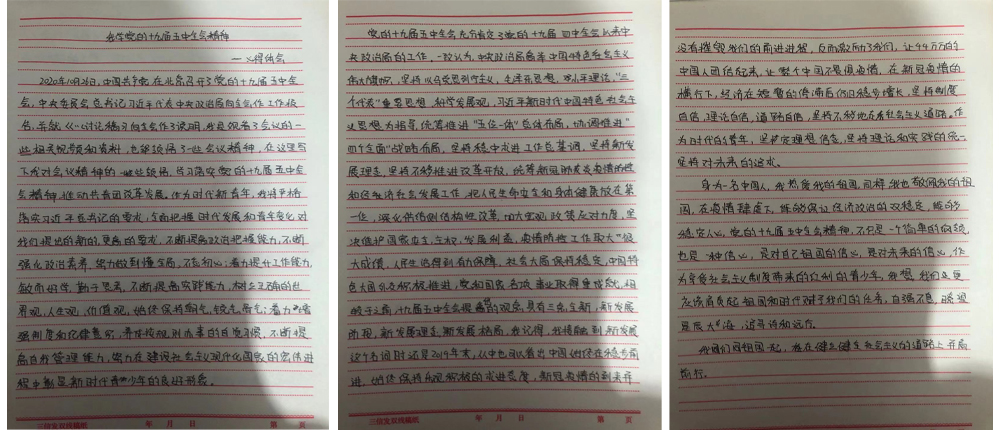 学党的十九届五中全会精神
一心得体会
2020年10月26日，中国共产党在北京召开了党的十九届五中全
会，中央委员会总书记习近平代表中央政治局向全会作工作报
告，并就《讨论稿》向全会作了说明，我是观看了会议的一
些相关视频和资料，也能领悟了一些会议精神，在这里写
下我对会议精神的一些领悟，学习落实党的十九届五中全
会精神，推动共青团改革发展。作为时代新青年，我将严格
落实习近平总书记的要求，全面把握时代发展和青年变化对
我们提出的新的，更高的要求，不断提高政治把握能力，不断
强化政治素养，努力做到懂全局，不忘初心；着力提升工作能力，
敏而好学，勤于思考，不断提高实践能力，树立正确的世
界观，人生观，价值观，始终保持朝气，锐气，奋气；着力增
强制度和纪律意识，养成按规则办事的自觉习惯，不断提
高自我管理能力，努力在建设社会主义现代化国家的宏伟进
程中彰显新时代青少年的良好形象。
党的十九届五中全会充分肯定了党的十九届四中全会以来中
央政治局的工作，一致认为，中央政治局高举中国特色社会主义
伟大旗帜，坚持以马克思列宁主义，毛泽东思想，邓小平理论，"三
个代表"重要思想，科学发展观，习近平新时代中国特色社会主
义思想为指导，统筹推进"五位一体"总体布局，协调推进"
四个全面"战略布局，坚持稳中求进工作总基调，坚持新发
展理念，坚持不移推进改革开放，统筹新冠肺炎疫情防控
和经济社会发展工作，把人民生命安全和身体健康放在第
一位，深化供给侧结构性改革，加大宏观政策应对力度，坚
决维护国家安全，主权，发展利益，疫情防控工作取大
大成绩，人民生活得到有力保障，社会大局保持稳定，中国特
色大国外交积极推进，党和国家各项事业取得重成就，相
较于之前，十九届五中全会提的观念，具有三个全新，新发展
阶段，新发展理念，新发展格局，我记得，我接触到新发展
这个名词时还是2019年末，从中也可以看出中国始终在稳步前
进，始终保持乐观积极的求进态度，新冠疫情的到来并
没有摧毁我们的前进进程，反而激励了我们，让
中国人团结起来，让整个中国不畏惧疫情，在新冠疫情的
横行下，经济在短暂的停滞后仍旧稳步增长，坚持制度
自信，理论自信，道路自信，坚持不移地走社会主义道路。作
为时代的青年，坚定理想信念，坚持理论和实践的统一，
坚持对未来的追求。
身为一名中国人，我热爱我的祖国，同样我也敬佩我的祖
国，在疫情肆虐下，能够保证经济政治的双稳定，能够
稳定人心，党的十九届五中全会精神，不只是一个简单的词语，
也是一种信心，是对自己祖国的信心，是对未来的信心，作
为享受社会主义制度带来的红利的青少年，我想，我们更
应该肩负起祖国和时代赋予我们的任务，自强不息，盼望
星辰大海，追寻诗和远方。
我们同祖国一起，都在社会主义的道路上开启
前行。
三信发双线稿纸
年 月 日
第 页
三信发双线稿纸
年 月 日
第 页